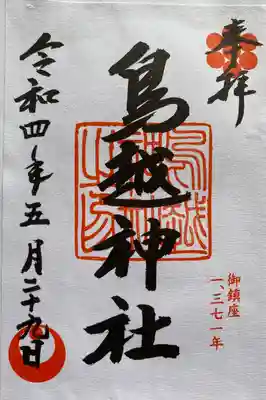 奉拝
鳥越神社
御鎮座
一、三七一年
令和四年五月二十九日